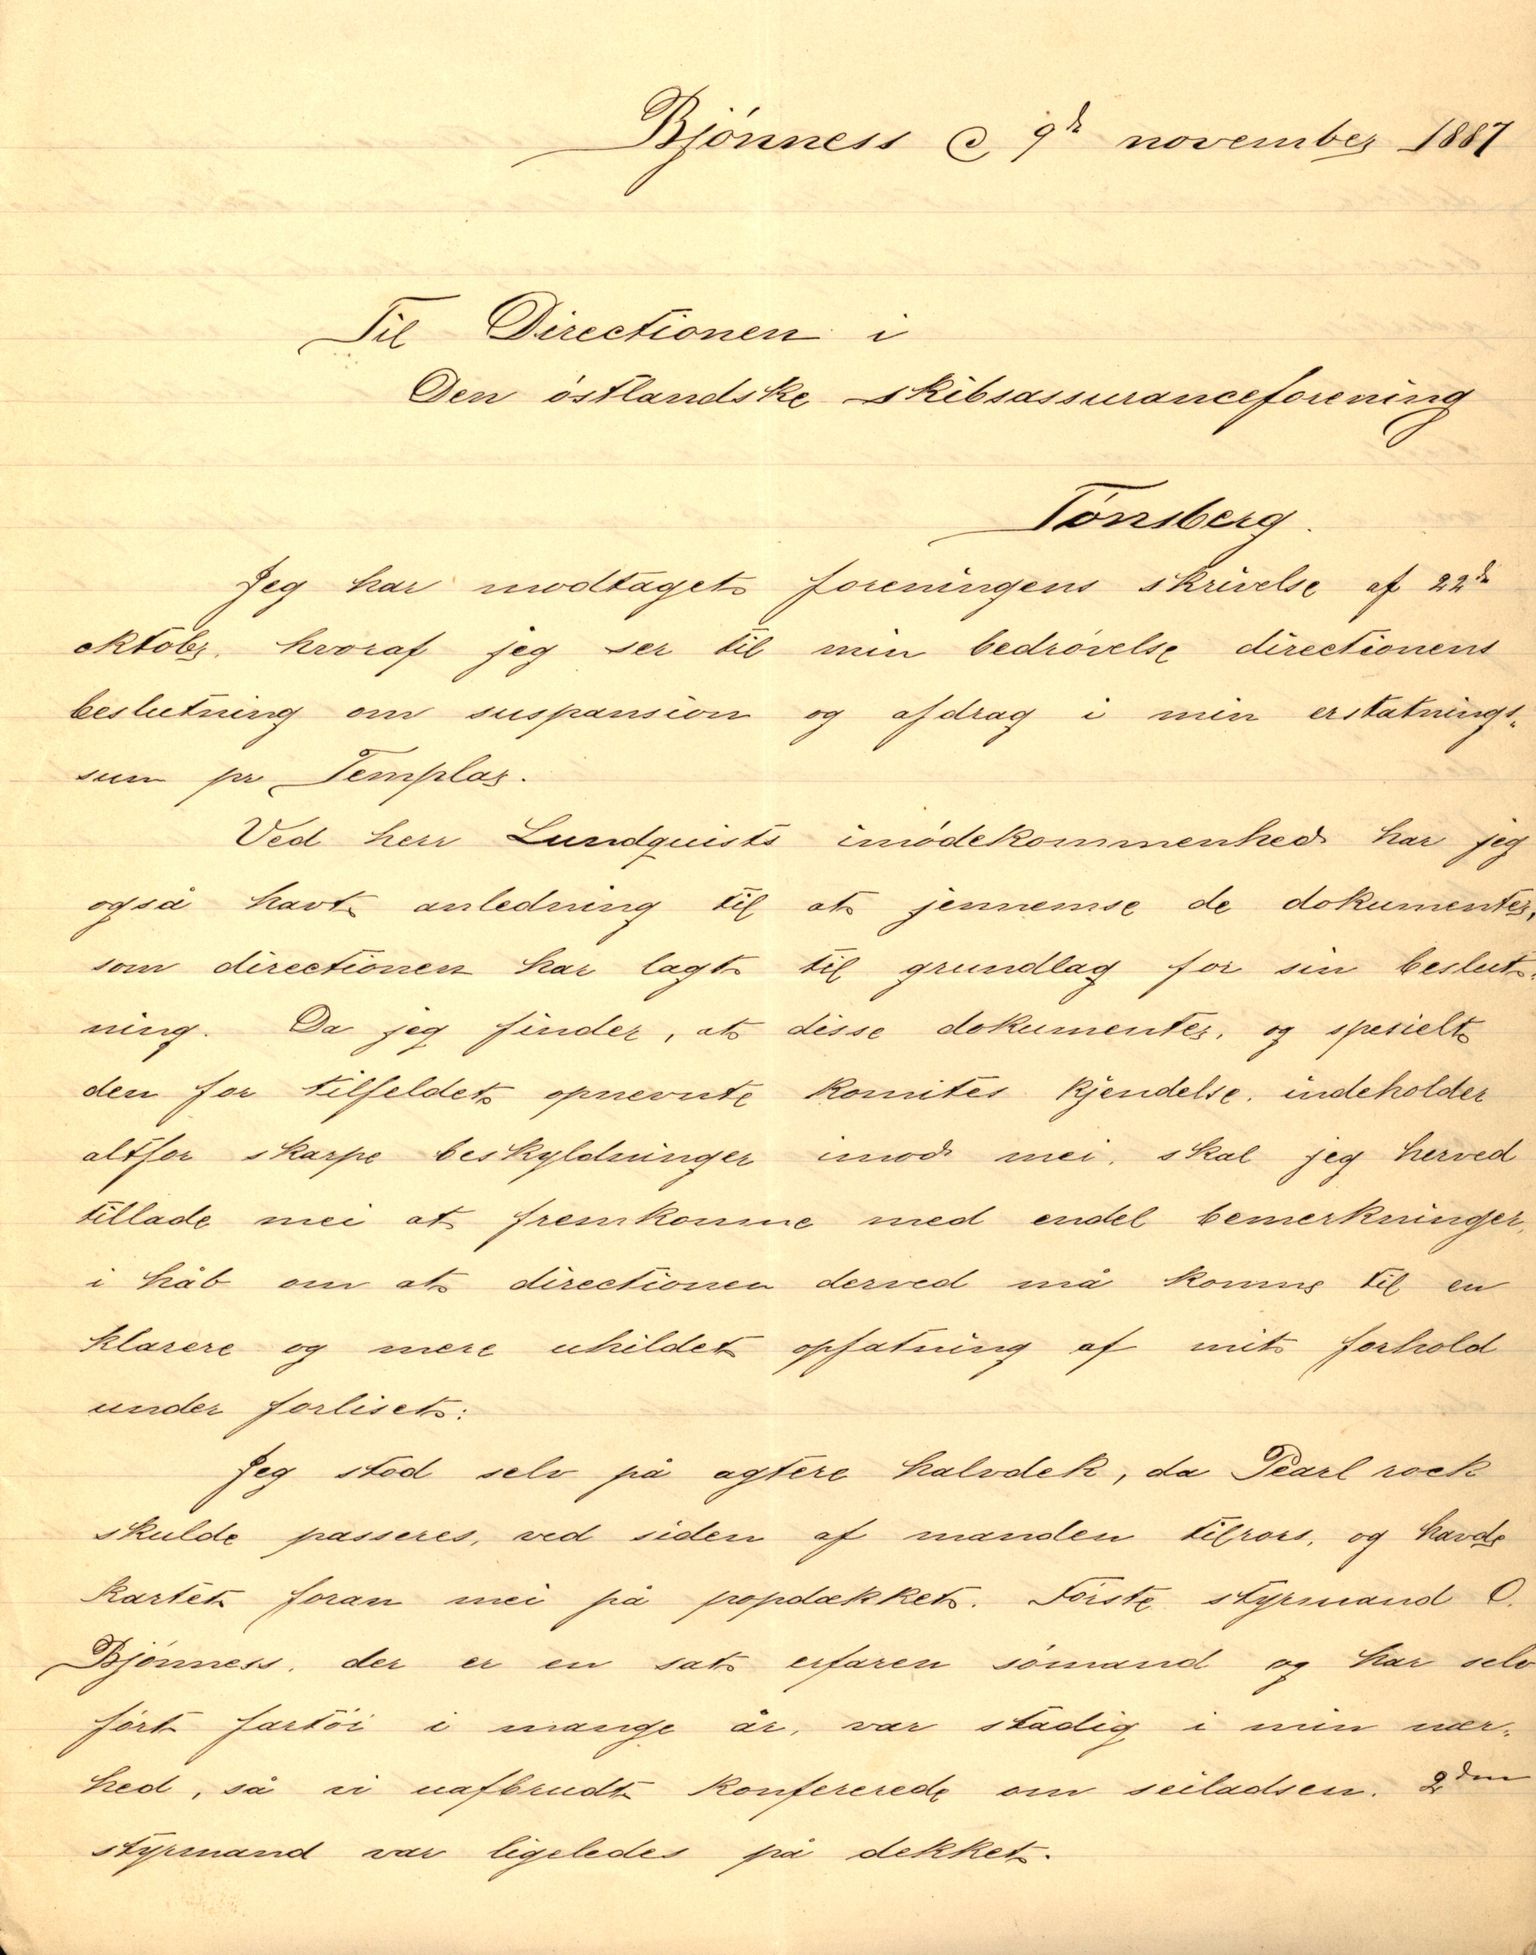 Bjønness d 9de november 1887
Til Directionen i
Den østlandske skibsassuranceforening
Tønsberg.
Jeg har modtaget foreningens skrivelse af 22de
oktober, hvoraf jeg ser til min bedrøvelse directionens
beslutning om suspansion og afdrag i min erstatnings-
sum pr Templar.
Ved herr Lundquists imødekommenhed har jeg
også havt anledning til at jennemse de dokumenter,
som directionen har lagt til grundlag for sin beslut-
ning. Da jeg finder, at disse dokumenter, og spesielt
den for tilfeldet opnevnte komites kjendelse, indeholder
altfor skarpe beskyldninger imod mei, skal jeg herved
tillade mei at fremkomme med endel bemerkninger,
i håb om at directionen derved må komme til en
klarere og mere uhildet opfatning af mit forhold
under forliset:
Jeg stod selv på agtere halvdek, da Pearl rock
skulde passeres, ved siden af manden tilrors, og havde
kartet foran mei på popdækket. Første styrmand O.
Bjønness, der er en sat erfaren sømand og har selv
ført fartøi i mange år, var stadig i min nær-
hed, så vi uafbrudt konfererede om seiladsen. 2den
styrmand var ligeledes på dekket.